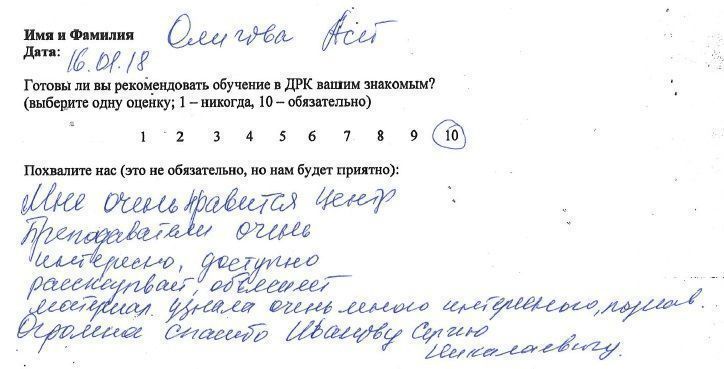 Имя и Фамилия Олигова Асет
Дата: 16.01.18
Готовы ли вы рекомендовать обучение в ДРК вашим знакомым?
(выберите одну оценку; 1 – никогда, 10 – обязательно)
1 2 3 4 5 6 7 8 9 10
Похвалите нас (это не обязательно, но нам будет приятно):
Мне очень нравится Центр
Преподаватели очень
интересно, доступно
рассказывает, объясняет
материал узнала очень много интересного,
Огромное спасибо Иванову Сергею
Николаевичу.